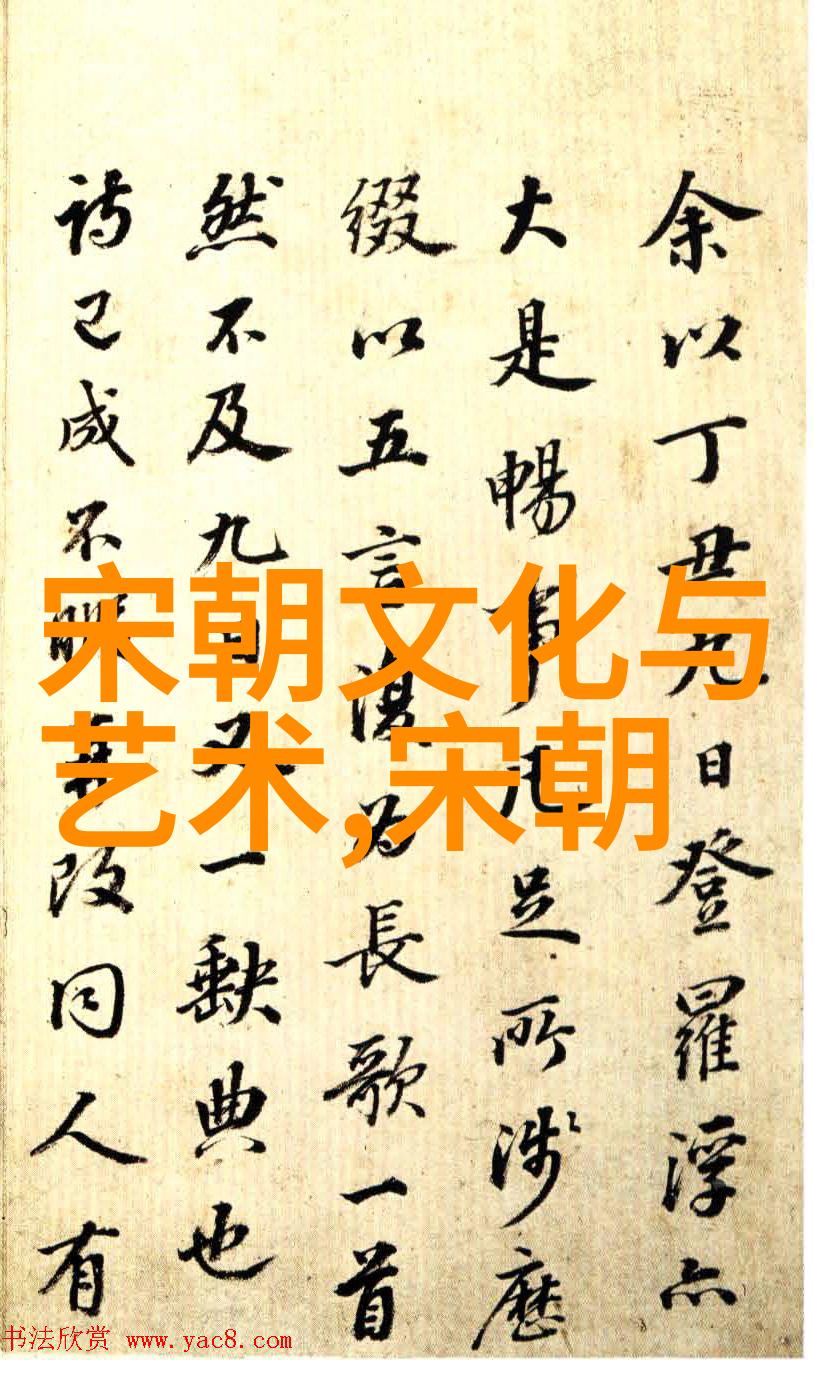 余以丁丑九日登羅浮亦
大是暢事凡足所涉歷
綴以五言为長歌一首
然不及九日又一缺典也
詩已成不改同人有
宋朝文化与
艺术,宋朝
书法欣赏 www.yac8.com